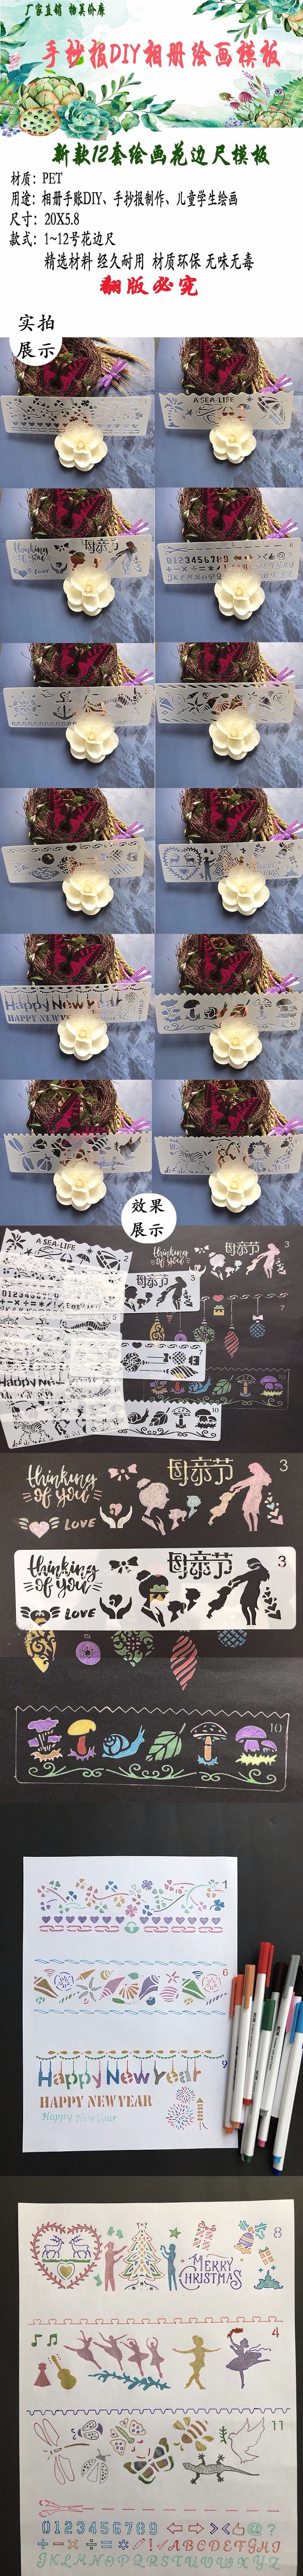 厂家直销 物美价廉
手抄报DIY相册绘画模板
新款12套绘画花边尺模板
材质：PET
用途：相册手账DIY、手抄报制作、儿童学生绘画
尺寸：20X5.8
款式：1~12号花边尺
精选材料 经久耐用 材质环保 无味无毒
翻版必究
实拍
展示
A SEA LIFE
thinking
of you
母亲节
Love
0123456789
@?
JKLMNOPQ
Happy New Year
HAPPY NEW YEAR
效果
展示
A SEA LIFE
thinking
of you
母亲节
3
3
7
10
10
Happy New
thinking
of you
LOVE
母亲节
3
thinking
of you
LOVE
母亲节
3
10
1
6
9
Happy New Year
HAPPY NEW YEAR
Happy New Year
8
MERRY
CHRISTMAS
4
11
0123456789 @?
+-×÷=# ! ABCDEFGHI
JKLMNOPQRSTUVWXYZ